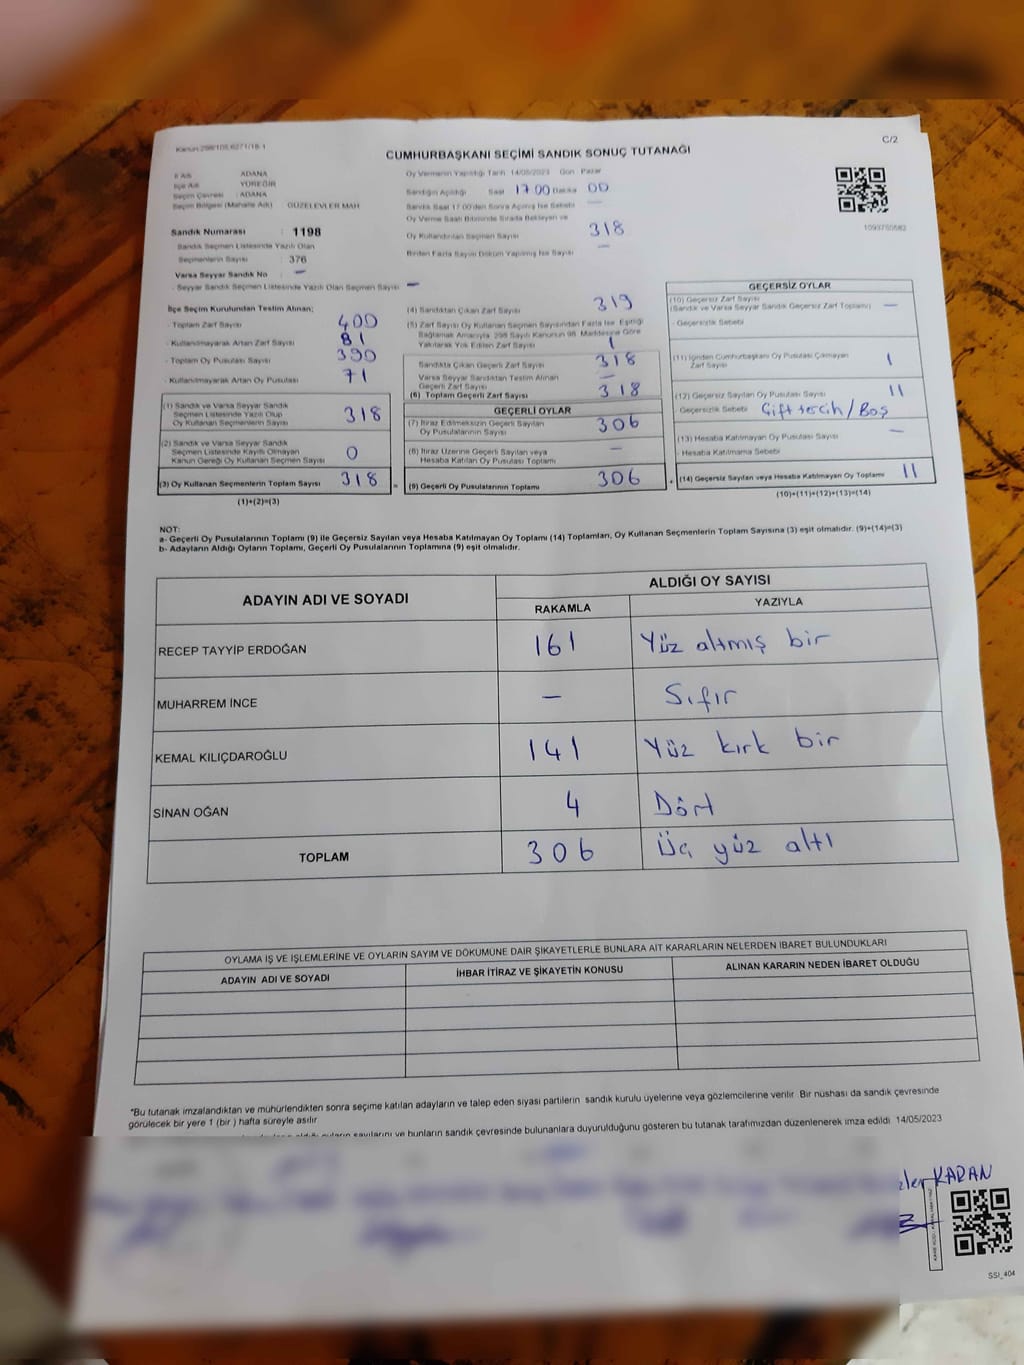 Kanun:298/105,6271/18-1
C/2
CUMHURBAŞKANI SEÇİMİ SANDIK SONUÇ TUTANAĞI
İl Adı ADANA
İlçe Adı YÜREĞİR
Seçim Çevresi : ADANA
Seçim Bölgesi (Mahalle Adı) : GÜZELEVLER MAH
Sandık Numarası : 1198
Sandık Seçmen Listesinde Yazılı Olan
Seçmenlerin Sayısı : 376
Varsa Seyyar Sandık No : —
- Seyyar Sandık Seçmen Listesinde Yazılı Olan Seçmen Sayısı —
Oy Vermenin Yapıldığı Tarih 14/05/2023 Gün Pazar
Sandığın Açıldığı Saat 17.00 Dakika 00
Sandık Saat 17.00'den Sonra Açılmış İse Sebebi —
Oy Verme Saati Bitiminde Sırada Bekleyen ve
Oy Kullandırılan Seçmen Sayısı 318
Birden Fazla Sayım Döküm Yapılmış İse Sayısı —
1093750582
İlçe Seçim Kurulundan Teslim Alınan;
- Toplam Zarf Sayısı 400
- Kullanılmayarak Artan Zarf Sayısı 81
- Toplam Oy Pusulası Sayısı 390
- Kullanılmayarak Artan Oy Pusulası 71
(1) Sandık ve Varsa Seyyar Sandık
Seçmen Listesinde Yazılı Olup
Oy Kullanan Seçmenlerin Sayısı 318
(2) Sandık ve Varsa Seyyar Sandık
Seçmen Listesinde Kayıtlı Olmayan
Kanun Gereği Oy Kullanan Seçmen Sayısı 0
(3) Oy Kullanan Seçmenlerin Toplam Sayısı 318
(1)+(2)=(3)
(4) Sandıktan Çıkan Zarf Sayısı 319
(5) Zarf Sayısı Oy Kullanan Seçmen Sayısından Fazla İse, Eşitliği
Sağlamak Amacıyla, 298 Sayılı Kanunun 98. Maddesine Göre
Yakılarak Yok Edilen Zarf Sayısı 1
Sandıkta Çıkan Geçerli Zarf Sayısı 318
Varsa Seyyar Sandıktan Teslim Alınan
Geçerli Zarf Sayısı —
(6) Toplam Geçerli Zarf Sayısı 318
GEÇERLİ OYLAR
(7) İtiraz Edilmeksizin Geçerli Sayılan
Oy Pusulalarının Sayısı 306
(8) İtiraz Üzerine Geçerli Sayılan veya
Hesaba Katılan Oy Pusulası Toplamı —
(9) Geçerli Oy Pusulalarının Toplamı 306
GEÇERSİZ OYLAR
(10) Geçersiz Zarf Sayısı
(Sandık ve Varsa Seyyar Sandık Geçersiz Zarf Toplamı) —
- Geçersizlik Sebebi
(11) İçinden Cumhurbaşkanı Oy Pusulası Çıkmayan
Zarf Sayısı 1
(12) Geçersiz Sayılan Oy Pusulası Sayısı 11
Geçersizlik Sebebi Çift tercih/Boş
(13) Hesaba Katılmayan Oy Pusulası Sayısı —
- Hesaba Katılmama Sebebi
(14) Geçersiz Sayılan veya Hesaba Katılmayan Oy Toplamı 11
(10)+(11)+(12)+(13)=(14)
NOT:
a- Geçerli Oy Pusulalarının Toplamı (9) ile Geçersiz Sayılan veya Hesaba Katılmayan Oy Toplamı (14) Toplamları, Oy Kullanan Seçmenlerin Toplam Sayısına (3) eşit olmalıdır. (9)+(14)=(3)
b- Adayların Aldığı Oyların Toplamı, Geçerli Oy Pusulalarının Toplamına (9) eşit olmalıdır.
ADAYIN ADI VE SOYADI ALDIĞI OY SAYISI
RAKAMLA YAZIYLA
RECEP TAYYİP ERDOĞAN 161 Yüz altmış bir
MUHARREM İNCE — Sıfır
KEMAL KILIÇDAROĞLU 141 Yüz kırk bir
SİNAN OĞAN 4 Dört
TOPLAM 306 Üç yüz altı
OYLAMA İŞ VE İŞLEMLERİNE VE OYLARIN SAYIM VE DÖKÜMÜNE DAİR ŞİKAYETLERLE BUNLARA AİT KARARLARIN NELERDEN İBARET BULUNDUKLARI
ADAYIN ADI VE SOYADI İHBAR İTİRAZ VE ŞİKAYETİN KONUSU ALINAN KARARIN NEDEN İBARET OLDUĞU
*Bu tutanak imzalandıktan ve mühürlendikten sonra seçime katılan adayların ve talep eden siyasi partilerin sandık kurulu üyelerine veya gözlemcilerine verilir. Bir nüshası da sandık çevresinde
görülecek bir yere 1 (bir) hafta süreyle asılır.
sayılarını ve bunların sandık çevresinde bulunanlara duyurulduğunu gösteren bu tutanak tarafımızdan düzenlenerek imza edildi 14/05/2023
KARAN
SSI_404